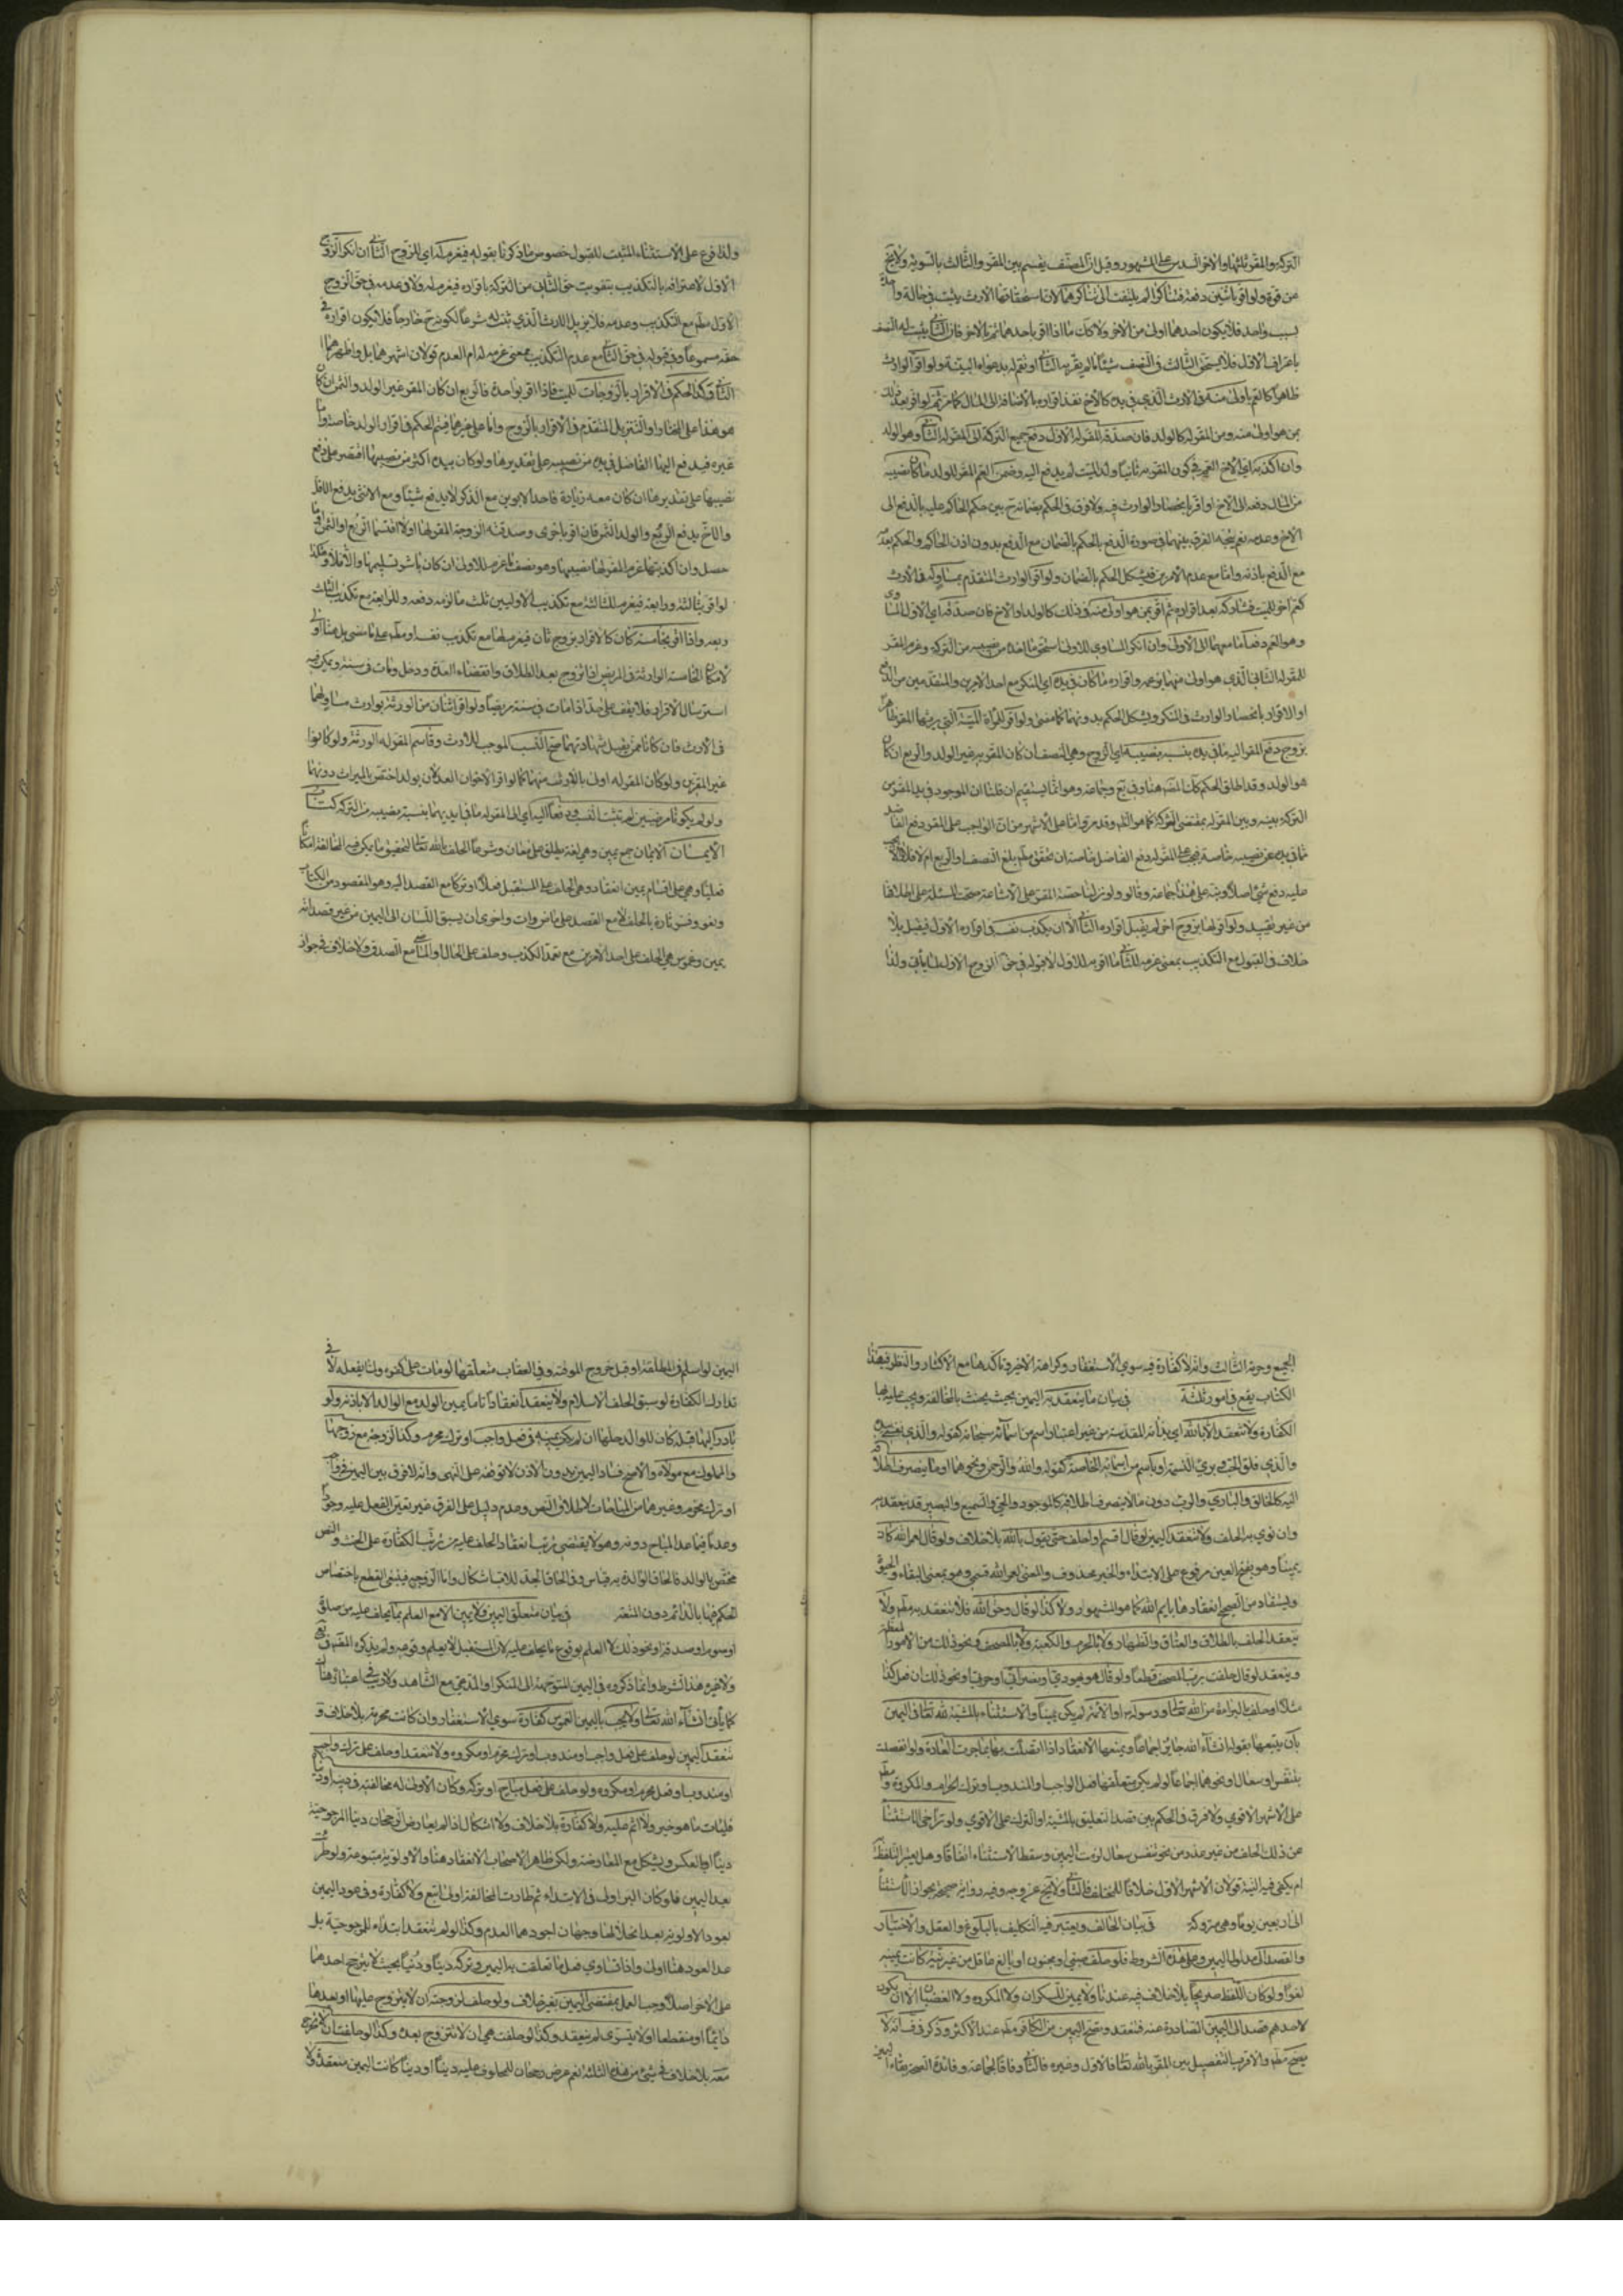 التركة والمقر بثلثها والاخر السدس على المشهور وقيل ان النصف يقسم بين المقر والثالث بالسوية ولا يخ
من قوة ولو اقر باثنين دفعة فتناكرا لم يلتفت الى تناكرهما لان استحقاقهما الارث يثبت في حالة واحدة
بسبب واحد فلا يكون احدهما اولى من الاخر ولا كك ما اذا اقر باحدهما ثم بالاخر فان الثاني يثبت له النصف
باعتراف الاول فلا يستحق الثالث في النصف شيئا ما لم يقر به الثاني او تقم له بدعواه البينة ولو اقر الوارث
ظاهرا كالعم باولى منه في الارث الذي في يده كالاخ نفذ اقراره بالاضافة الى المال كما مر ثم لو اقر بعد ذلك
بمن هو اولى منه ومن المقر له كالولد فان صدقه المقر له الاول دفع جميع التركة الى المقر له الثاني وهو الولد
وان اكذبه اي الاخ العم في كون المقر به ثانيا ولد الميت لم يدفع اليه وضمن العم المقر للولد ما كان نصيبه
من المال دفعه الى الاخ او اقر بانحصار الوارث فيه ولا فرق في الحكم بضمانه ح بين حكم الحاكم عليه بالدفع الى
الاخ وعدمه نعم يتجه الفرق بينهما في صورة الدفع بالحكم بالضمان مع الدفع بدون اذن الحاكم والحكم بعدمه
مع الدفع باذنه واما مع عدم الامرين فيشكل الحكم بالضمان ولو اقر الوارث المتقدم بمساو له في الارث
كعم اخر للميت فشاركه بعد اقراره ثم اقر بمن هو اولى منه في ذلك كالولد او الاخ فان صدقه اي الاول المساوي
وهو العم دفعا ما معهما الى الاولى وان انكر المساوي للاول استحق ما اخذه من نصيبه من التركة وغرم المقر
للمقر له الثاني الذي هو اولى منهما بزعمه واقراره ما كان في يده اي المنكر مع احد الامرين المتقدمين من الدفع
او الاقرار بانحصار الوارث في المنكر ويشكل الحكم بدونهما كما مضى ولو اقر للمراة الميتة التي يرثها المقر ظاهرا
بزوج دفع المقر اليه مما في يده بنسبة نصيبه اي الزوج وهي النصف ان كان المقر به غير الولد والربع ان كان
هو الولد وقد اطلق الحكم كك المصنف هنا وفي يع وجماعة وهو انما يستقيم ان قلنا ان الموجود في يد المقر من
التركة بينه وبين المقر له بمقتضى الشركة كما هو الظ وقد مر واما على الاشهر من ان الواجب على المقر دفع الفاضل
مما في يده عن نصيبه خاصة فيجب على المقر له دفع الفاضل خاصة ان تحقق مطلقا بلغ النصف او الربع ام لا فلا يجب
عليه دفع شئ اصلا ونبه على هذا جماعة وقالوا ولو نزلنا حصة المقر على الاشاعة صحت المسئلة على اطلاقها
من غير تقييد ولو اقر لها بزوج اخر لم يقبل اقراره الثاني الا ان يكذب نفسه في اقراره الاول فيقبل بلا
خلاف في القبول مع التكذيب بمعنى غرمه للثاني ما اقر به للاول لا قبوله في حق الزوج الاول لما ياتي ولذا
ولذا فرع على الاستثناء المثبت للقبول خصوص ما ذكرنا بقوله فيغرم له اي للزوج الثاني ان انكر الزوج
الاول لاعترافه بالتكذيب بتفويت حق الثاني من التركة باقراره فيغرم له ولا فرق عدمه في حق الزوج
الاول مطلقا مع التكذيب وعدمه فلا يزيل الارث الذي ثبت له شرعا لكونه ح خارجا فلا يكون اقراره في
حقه مسموعا وفي قبوله في حق الثاني مع عدم التكذيب بمعنى غرمه له ام العدم قولان اشهرهما بل واظهرهما
الثاني وكذا الحكم في الاقرار بالزوجات للميت فاذا اقر بواحدة فالربع ان كان المقر غير الولد والثمن ان كان
هو هذا على المختار او التنزيل المتقدم في الاقرار بالزوج واما على غيرهما فيتم الحكم في اقرار الولد خاصة واما
غيره فيدفع اليها الفاضل في يده من نصيبه على تقديرها ولو كان بيده اكثر من نصيبها اقتصر على دفع
نصيبها على تقديرها ان كان معه زيادة فاحد الابوين مع الذكر لا يدفع شيئا ومع الانثى يدفع الاقل
والاخ يدفع الربع والولد الثمن فان اقر باخرى وصدقته الزوجة المقر لها اولا اقتسما الربع او الثمن او ما
حصل وان اكذبتها غرم المقر لها نصيبها وهو نصف ما غرمه للاولى ان كان باشر تسليمها والا فلا وهكذا
لو اقر بثالثة ورابعة فيغرم للثالثة مع تكذيب الاوليين ثلث ما لزمه دفعه وللرابعة مع تكذيب الثلث
ربعه واذا اقر بخامسة كان كالاقرار بزوج ثان فيغرم لها مع تكذيب نفسه او مطلقا على ما مضى بل هنا اولى
لامكان الخامسة الوارثة في المريض اذا تزوج بعد الطلاق وانقضاء العدة ودخل ومات في سنته ويمكن فيه
استرسال الاقرار فلا يقف على حد اذا مات في سنة مريضا ولو اقر اثنان من الورثة بوارث مساو لهما
في الارث فان كانا ممن يقبل شهادتهما صح النسب الموجب للارث وقاسم المقر له الورثة ولو كانوا
غير المقرين ولو كان المقر له اولى بالارث منهما كما لو اقر الاخوان العدلان بولد اختص بالميراث دونهما
ولو لم يكونا مرضيين لم يثبت النسب ودفعا اليه اي الى المقر له مما في ايديهما بنسبة نصيبه من التركة كتاب
الايمان الايمان جمع يمين وهي لغة يطلق على معان وشرعا الحلف بالله تعالى لتحقيق ما يمكن فيه المخالفة امكانا
فعليا وهي على اقسام يمين انعقاد وهي الحلف على المستقبل فعلا او تركا مع القصد اليه وهو المقصود من الكتاب
ولغو وفسر تارة بالحلف لا مع القصد على ماض وات واخرى ان يسبق اللسان الى اليمين من غير قصد انه
يمين وغموس هي الحلف على احد الامرين مع تعمد الكذب وحلف على الحال او الماضي مع الصدق ولا خلاف في جواز
الجميع وحرمة الثالث وانه لا كفارة فيه سوى الاستغفار وكراهة الاخير وتاكدها مع الاكثار والنظر في هذا
الكتاب يقع في امور ثلثة في بيان ما ينعقد به اليمين بحيث يحنث بالمخالفة ويجب عليه بها
الكفارة ولا تنعقد الا بالله اي بذاته المقدسة من غير اعتبار اسم من اسمائه سبحانه كقوله والذي نفسي بيده
والذي فلق الحبة وبرئ النسمة او باسم من اسمائه الخاصة كقوله والله والرحمن ونحوهما او ما ينصرف اطلاقه
اليه كالخالق والبارئ والرب دون ما لا ينصرف اطلاقه كالموجود والحي والسميع والبصير قد ينعقد به
وان نوى به الحلف ولا تنعقد اليمين لو قال اقسم او احلف حتى يقول بالله بلا خلاف ولو قال لعمر الله كان
يمينا وهو بفتح العين مرفوع على الابتداء والخبر محذوف والمعنى لعمر الله قسمي وهو بمعنى البقاء والحيوة
ويستفاد من الصحيح انعقادها بايم الله كما هو المشهور ولا كذا لو قال وحق الله فلا تنعقد به مطلقا ولا
ينعقد الحلف بالطلاق والعتاق والظهار ولا بالحرم والكعبة ولا بالمصحف ونحو ذلك من الامور المعظمة
وينعقد لو قال حلفت برب المصحف قطعا ولو قال هو يهودي او نصراني او حربي او نحو ذلك ان فعل كذا
مثلا او حلف بالبراءة من الله تعالى ورسوله او الائمة لم يكن يمينا والاستثناء بالمشية لله تعالى في اليمين
بان يتبعها بقوله ان شاء الله جائز اجماعا ويمنعها الانعقاد اذا اتصلت بها بما جرت العادة ولو انفصلت
بتنفس او سعال او نحوهما اجماعا ولو لم يكن متعلقها فعل الواجب والمندوب او ترك الحرام والمكروه مطلقا
على الاشهر الاقوى ولا فرق في الحكم بين قصد التعليق بالمشية او التبرك على الاقوى ولو تراخى الاستثناء
عن ذلك الحلف من غير عذر من نحو تنفس وسعال لزمت اليمين وسقط الاستثناء اتفاقا وهل يعتبر التلفظ
ام يكفي فيه النية قولان الاشهر الاول خلافا للمختلف فالثاني ولا يخ عن وجه وفيه رواية صحيحة بجواز الاستثناء
الى اربعين يوما وهي متروكة في بيان الحالف ويعتبر فيه التكليف بالبلوغ والعقل والاختيار
والقصد الى مدلول اليمين وعلى هذه الشروط فلو حلف صبي او مجنون او بالغ عاقل من غير نية كانت يمينه
لغوا ولو كان اللفظ صريحا بلا خلاف فيه عندنا ولا يمين للسكران ولا المكره ولا الغضبان الا ان يكون
لاحدهم قصد الى اليمين الصادرة عنه فتنعقد وتصح اليمين من الكافر مطلقا عند الاكثر وذكر في ف انه لا
يصح مطلقا والاقرب التفصيل بين المقر بالله تعالى فالاول وغيره فالثاني وفاقا لجماعة وفائدة الصحة بقاء اليمين
اليمين لو اسلم في المطلقة او قبل خروج الموقتة وفي العقاب متعلقها لو مات على كفره ولما يفعله لا في
تدارك الكفارة لو سبق الحلف الاسلام ولا ينعقد انعقادا تاما يمين الولد مع الوالد الا باذنه ولو
بادر اليها قبله كان للوالد حلها ان لم يكن يمينه في فعل واجب او ترك محرم وكذا الزوجة مع زوجها
والمملوك مع مولاه والاصح فساد اليمين بدون الاذن لا توقفه على النهى وانه لا فرق بين اليمين في واجب
او ترك محرم وغيرهما من المباحات لاطلاق النص وعدم دليل على الفرق غير تعين الفعل عليه وجودا
وعدما فيما عدا المباح دونه وهو لا يقتضي ترتب انعقاد الحلف عليه من ترتب الكفارة على الحنث والنص
مختص بالوالد فالحاق الوالدة به قياس وفي الحاق الجد للاب اشكال واما الزوجة فينبغي القطع باختصاص
الحكم فيها بالدائم دون المتعة في بيان متعلق اليمين ولا يمين الا مع العلم بما يحلف عليه من صلوة
او صوم او صدقة او نحو ذلك لا العلم بوقوع ما يحلف عليه لان المستقبل لا يعلم وقوعه ولم يذكره المصنف في يع
ولا غيره هذا الشرط وانما ذكروه في اليمين المتوجهة الى المنكر او المدعي مع الشاهد ولا ريب في اعتباره هناك
كما ياتي ان شاء الله تعالى ولا يجب باليمين الغموس كفارة سوى الاستغفار وان كانت محرمة بلا خلاف و
تنعقد اليمين لو حلف على فعل واجب او مندوب او ترك محرم او مكروه ولا تنعقد لو حلف على ترك واجب
او مندوب او فعل محرم او مكروه ولو حلف على فعل مباح او تركه وكان الاولى له مخالفته في دينه او دنياه
فليات ما هو خير ولا اثم عليه ولا كفارة بلا خلاف ولا اشكال اذا لم يعارض الرجحان دنيا المرجوحية
دينا او بالعكس ويشكل مع المعارضة ولكن ظاهر الاصحاب الانعقاد هنا والاولوية متبوعة ولو طرئت
بعد اليمين فلو كان البر اولى في الابتداء ثم طارت المخالفة اولى اتبع ولا كفارة وفي عود اليمين
بعود الاولوية بعد انحلالها وجهان اجودهما العدم وكذا لو لم تنعقد ابتداء للمرجوحية بل
عدم العود هنا اولى واذا تساوى فعل ما تعلقت به اليمين وتركه دينا ودنيا بحيث لا يترجح احدهما
على الاخر اصلا وجب العمل بمقتضى اليمين بغير خلاف ولو حلف لزوجته ان لا يتزوج عليها او بعدها
دائما او منقطعا او لا يتسرى لم ينعقد وكذا لو حلفت هي ان لا تتزوج بعده وكذا لو حلفت ان لا تخرج
معه بلا خلاف في شئ من هذه الثلثة نعم عرض رجحان للمحلوف عليه دينا او دنيا كانت اليمين منعقدة ولا